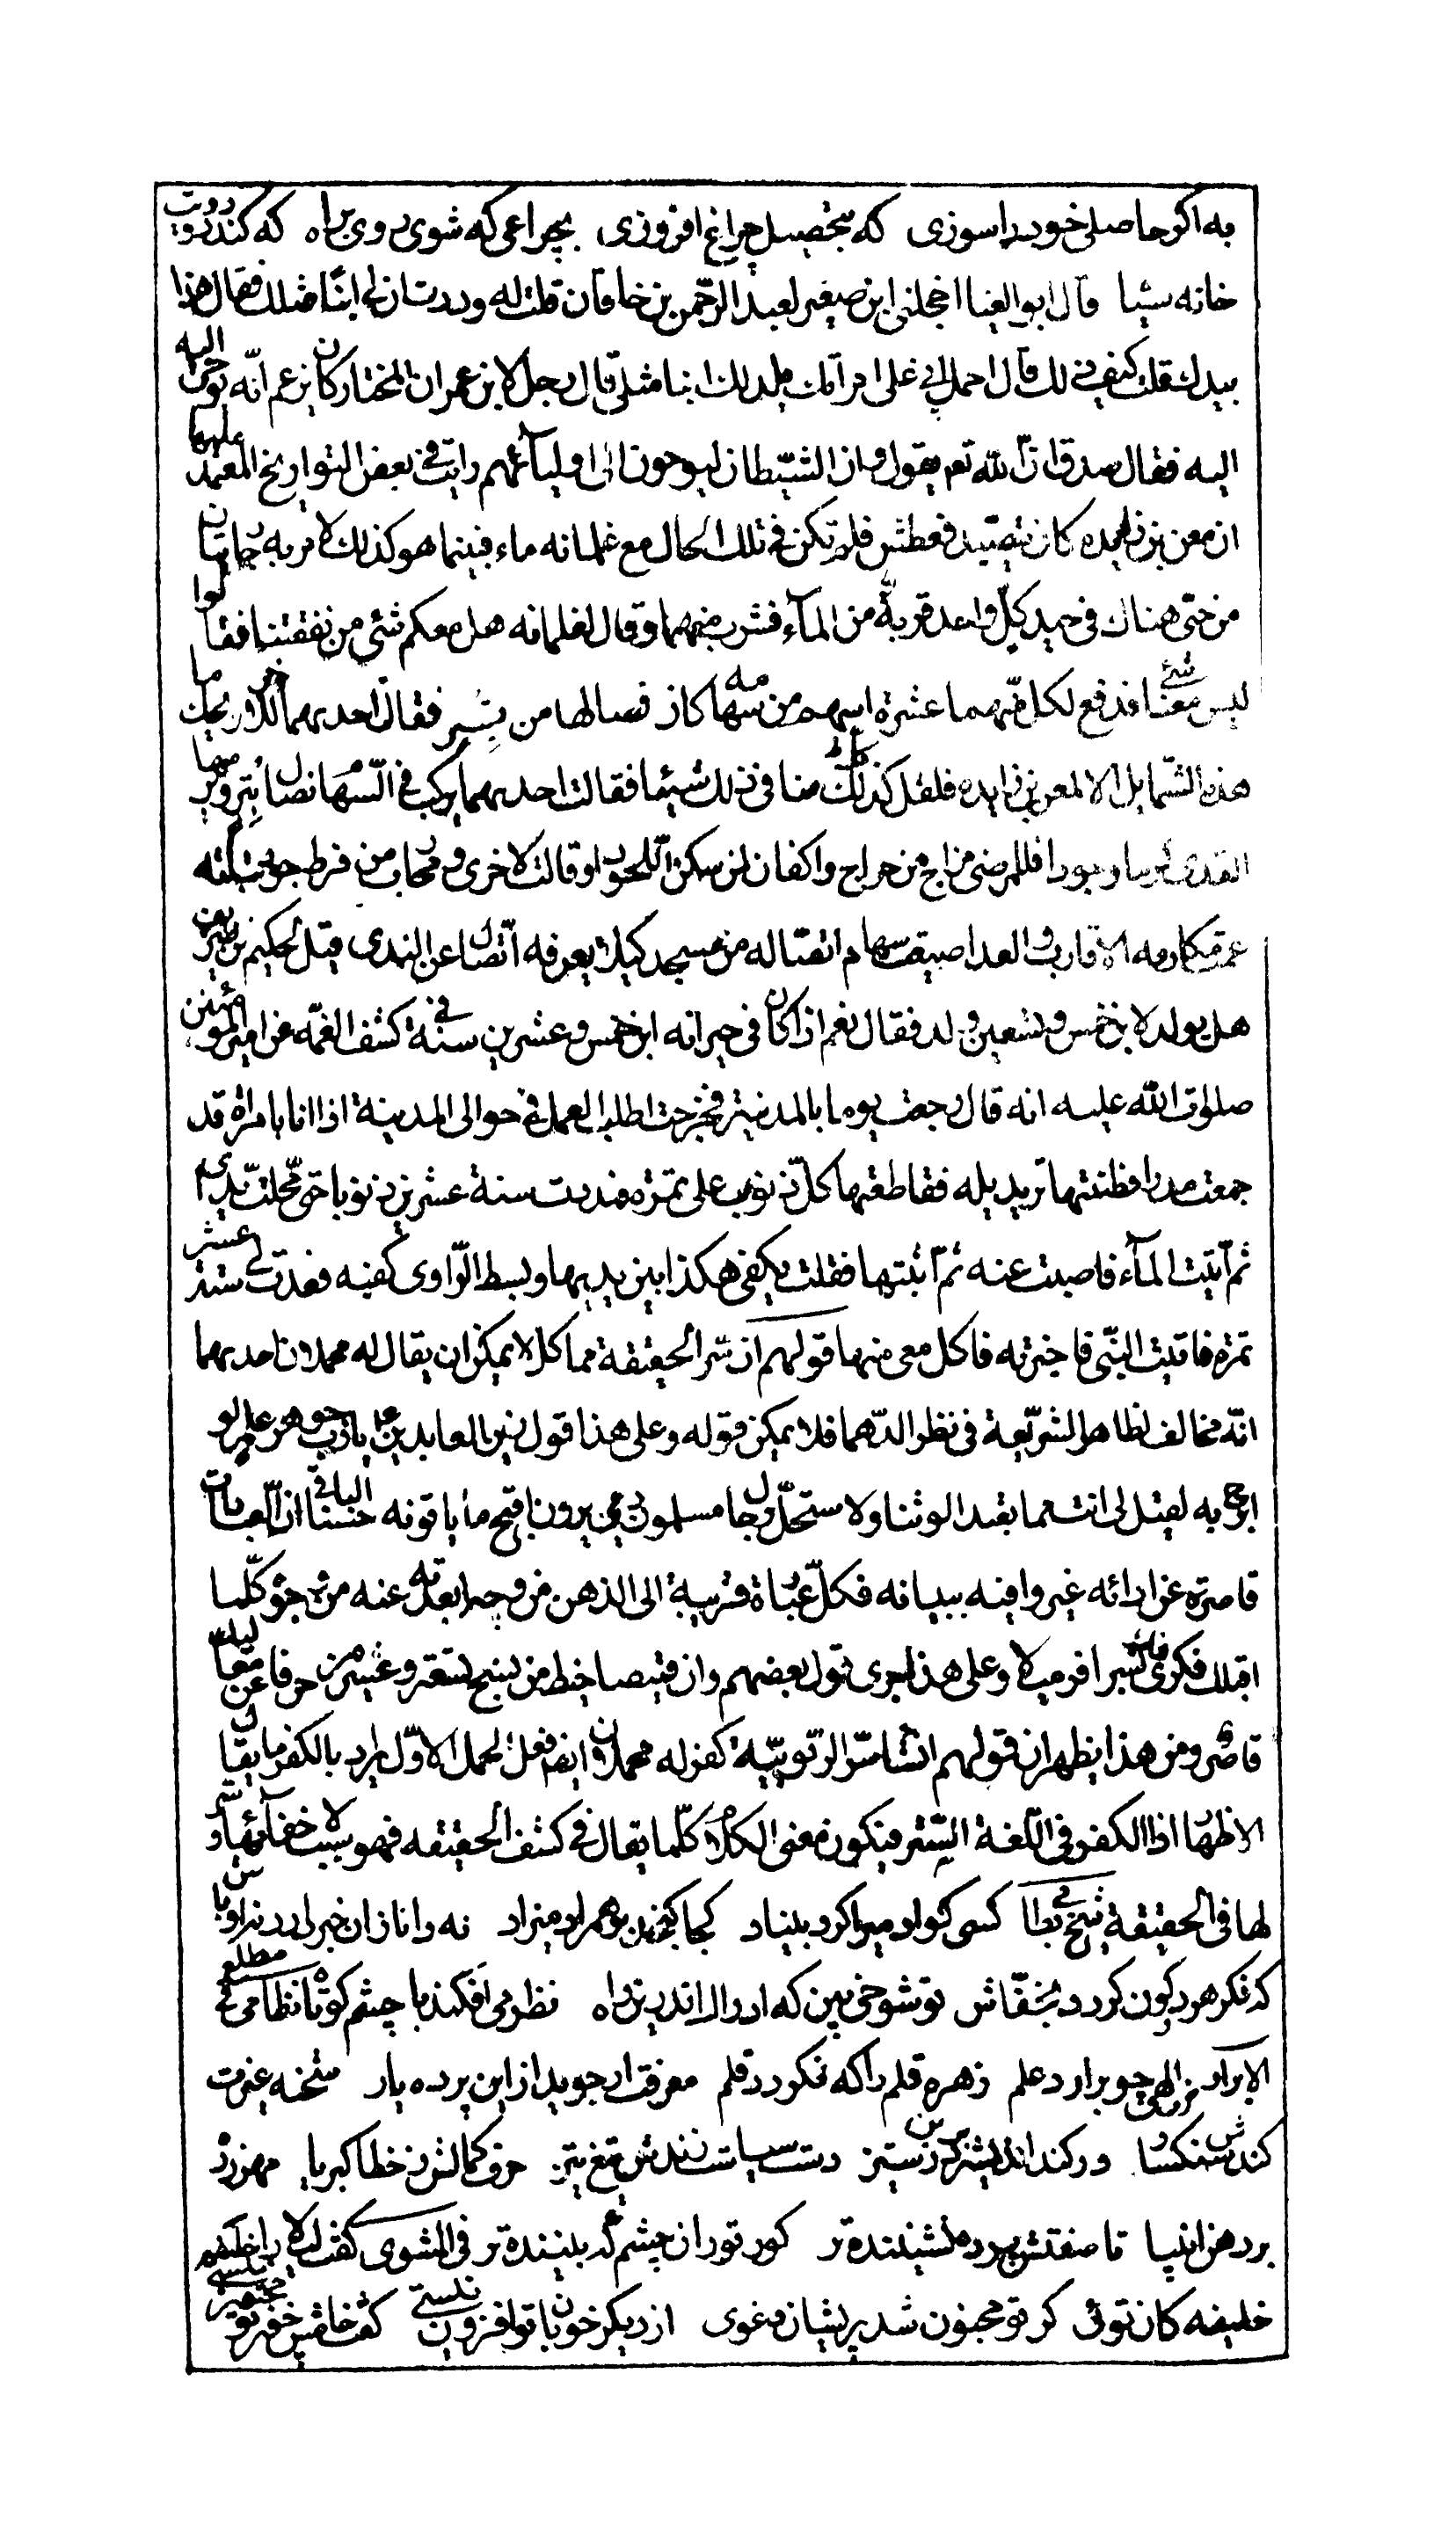 به اگر حاصلی خود را سوزی که بتحصیل چراغ افروزی بچراغی که شوی روی براه که کند دودت
خانه سیا قال ابو العینا اخجلنی ابن صغیر لعبد الرحمن بن خاقان قلت له وددت ان لی ابنا مثلک فقال هذا
بیدک قلت کیف ذلک قال احمل ابی علی امرأتک یلد لک ابنا مثلی قال رجل لابن عمران المختار کان یزعم انه یوحی
الیه فقال صدق ان الله تعم یقول وان الشیطان لیوحون الی اولیآئهم رایت فی بعض التواریخ المعتمد علیها
ان معن بن زایده کان یتصید فعطش فلم تکن فی تلک الحال مع غلمانه ماء فبینما هو کذلک مر به جاریتان
من حی هناک فی جید کل واحد قربة من المآء فشرب منهما وقال لغلمانه هل معکم شئ من نفقتنا فقالوا
لیس معنا شئ فدفع لکل منهما عشرة اسهم من سهامه کان نصالها من تبر فقالت احدیهما للاخری ویحک ما
هذه الشمایل الا لمعن بن زایده فلتقل کل منا فی ذلک شیئا فقالت احدیهما یرکب فی السهام نصال تبر ویرمیها
العدی کرما وجودا فللمرضی علاج من جراح واکفان لمن سکن اللحودا وقالت الاخری ومحارب من فرط جود بنانه
عمت مکارمه الاقارب والعدا صیغت سهام انضاله من عسجد کیلا یعوقه القتال عن الندی قیل لحکیم
هل یولد لابن خمس وتسعین ولد فقال نعم اذا کان فی جیرانه ابن خمس وعشرین سنة فی کشف الغمه عن امیر المؤمنین
صلوات الله علیه انه قال رجعت یوما بالمدینة فخرجت اطلب العمل فی حوالی المدینة اذا انا بامراة قد
جمعت مدرا فظننتها ترید بله فقاطعتها کل ذنوب علی تمرة فمددت ستة عشر ذنوبا حتی مجلت یدی
ثم اتیت المآء فاصبت عنه ثم اتیتها فقلت بکفی هکذا بین یدیها وبسط الراوی کفیه فعدت لی ستة عشر
تمرة فاتیت النبی فاخبرته فاکل معی منها قولهم ان سر الحقیقة مما لا یمکن ان یقال له محملان احدیهما
انه مخالف لظاهر الشریعة فی نظر العلماء فلا یمکن قوله وعلی هذا قول زین العابدین ع یا رب جوهر علم لو
ابوح به لقیل لی انت مما یعبد الوثنا ولاستحل رجال مسلمون دمی یرون اقبح ما یاتونه حسنا الثانی ان العبارات
قاصرة عن ادائه غیر وافیه ببیانه فکل عبارة قربته الی الذهن من وجه ابعدته عنه من وجوه کلما
اقبل فکری فیک شبرا فر میلا وعلی هذا جری قول بعضهم وان قمیصا خیط من نسج تسعة وعشرین حرفا عن معالیه
قاصر ومن هذا یظهر ان قولهم افشاء سر الربوبیة کفر له محملان ایضا فعلی المحمل الاول یراد بالکفر ما یقابل
الاظهار اذ الکفر فی اللغة الستر فیکون معنی الکلام کلما یقال فی کشف الحقیقه فهو سبب لاخفآئها وستر
لها فی الحقیقة شیخ عطار کسی کو او میرا کرد بنیاد کجا هر او میزاد نه دانا زان خبر دارد نه اوباش
که فکر هر دو کون کردد بخفاش تو شوخی بین که ادراک اندرین راه نظر می افکند با چشم کوتاه نظامی فی مطلع
الابرار نور الهی چو برارد علم زهره قلم را که نکو در قلم معرفت ار جوید از این پرده یار شحنه غیرت
کندش سنکسار ور کند اندیشه درین ره ستیز دست سیاست زندش تیغ تیز حرف کمالش ز خطا کبریا مهر زد
بر دهن انبیا تا صفتش پرده نشیننده تر کورتر ان چشم که بیننده تر فی المثنوی گفت لیلی را
خلیفه کان توئی کز تو مجنون شد پریشان وغوی از دیکر خوبان تو افزون نیستی گفت خامش چون تو مجنون نیستی